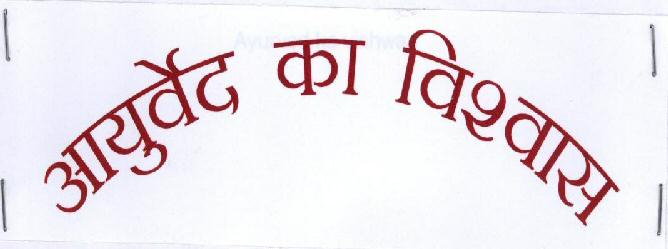 आयुर्वेद का विश्वास